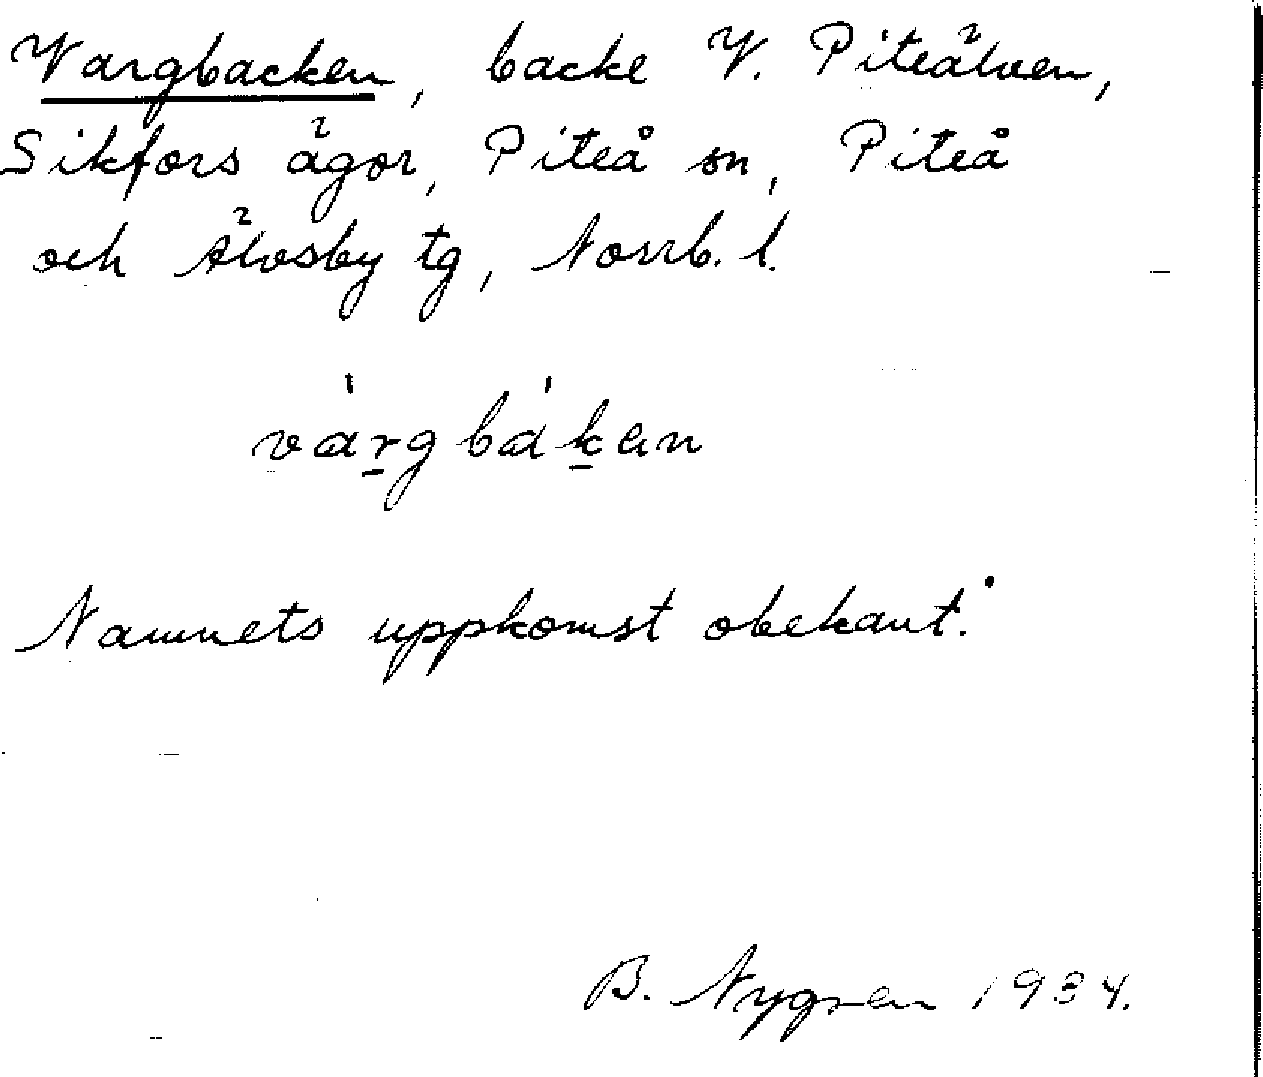 Vargbacken, backe V. Piteälven,
Sikfors ägor, Piteå sn, Piteå
och Älvsby tg, Norrb. l.
va̍r̲gba̍k̲en
Namnets uppkomst obekant.
B. Nygren 1934.